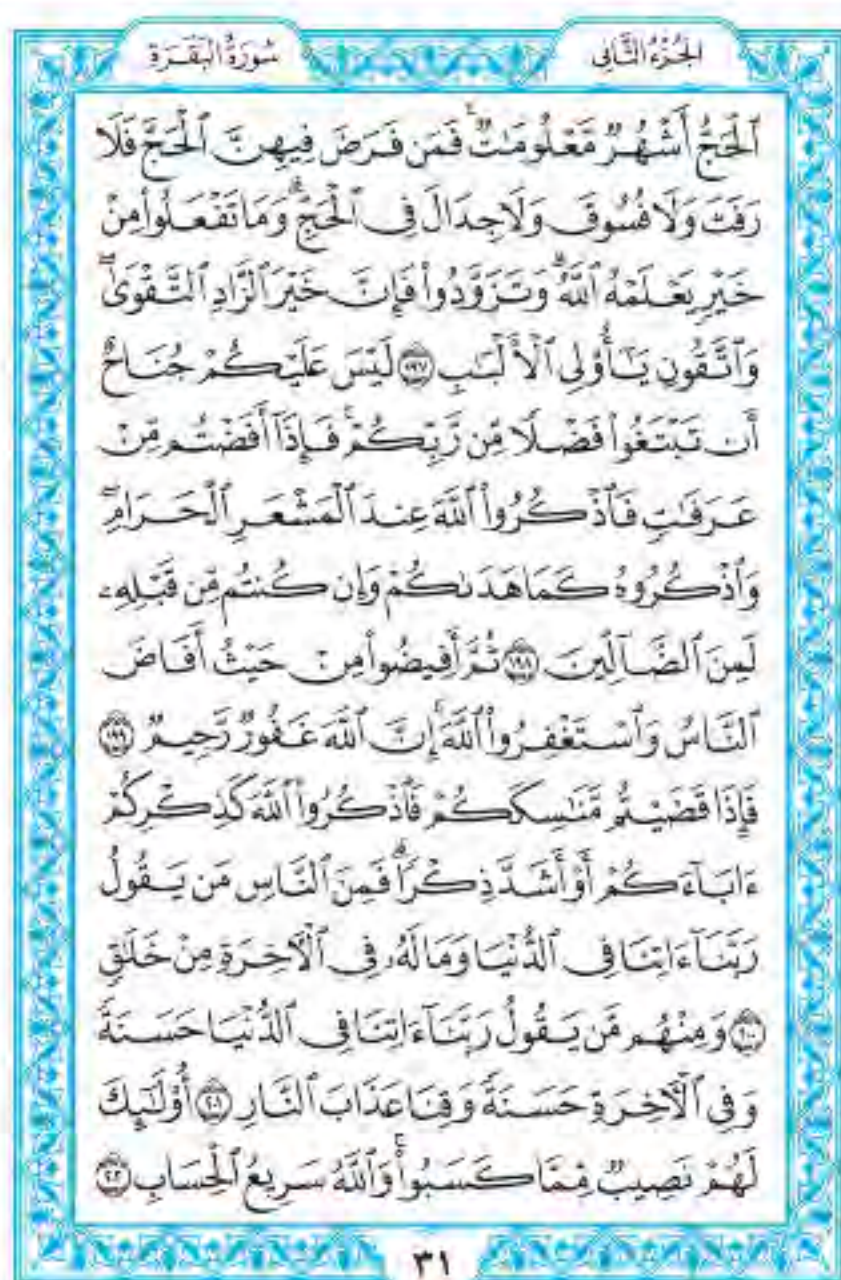 سُورَةُ الْبَقَرَةِ الْجُزْءُ الثَّانِي
ٱلْحَجُّ أَشْهُرٌ مَّعْلُومَٰتٌ ۚ فَمَن فَرَضَ فِيهِنَّ ٱلْحَجَّ فَلَا
رَفَثَ وَلَا فُسُوقَ وَلَا جِدَالَ فِى ٱلْحَجِّ ۗ وَمَا تَفْعَلُوا۟ مِنْ
خَيْرٍ يَعْلَمْهُ ٱللَّهُ ۗ وَتَزَوَّدُوا۟ فَإِنَّ خَيْرَ ٱلزَّادِ ٱلتَّقْوَىٰ ۖ
وَٱتَّقُونِ يَٰٓأُو۟لِى ٱلْأَلْبَٰبِ ١٩٧ لَيْسَ عَلَيْكُمْ جُنَاحٌ
أَن تَبْتَغُوا۟ فَضْلًا مِّن رَّبِّكُمْ ۚ فَإِذَآ أَفَضْتُم مِّنْ
عَرَفَٰتٍ فَٱذْكُرُوا۟ ٱللَّهَ عِندَ ٱلْمَشْعَرِ ٱلْحَرَامِ ۖ
وَٱذْكُرُوهُ كَمَا هَدَىٰكُمْ وَإِن كُنتُم مِّن قَبْلِهِۦ
لَمِنَ ٱلضَّآلِّينَ ١٩٨ ثُمَّ أَفِيضُوا۟ مِنْ حَيْثُ أَفَاضَ
ٱلنَّاسُ وَٱسْتَغْفِرُوا۟ ٱللَّهَ ۚ إِنَّ ٱللَّهَ غَفُورٌ رَّحِيمٌ ١٩٩
فَإِذَا قَضَيْتُم مَّنَٰسِكَكُمْ فَٱذْكُرُوا۟ ٱللَّهَ كَذِكْرِكُمْ
ءَابَآءَكُمْ أَوْ أَشَدَّ ذِكْرًا ۗ فَمِنَ ٱلنَّاسِ مَن يَقُولُ
رَبَّنَآ ءَاتِنَا فِى ٱلدُّنْيَا وَمَا لَهُۥ فِى ٱلْءَاخِرَةِ مِنْ خَلَٰقٍ
٢٠٠ وَمِنْهُم مَّن يَقُولُ رَبَّنَآ ءَاتِنَا فِى ٱلدُّنْيَا حَسَنَةً
وَفِى ٱلْءَاخِرَةِ حَسَنَةً وَقِنَا عَذَابَ ٱلنَّارِ ٢٠١ أُو۟لَٰٓئِكَ
لَهُمْ نَصِيبٌ مِّمَّا كَسَبُوا۟ ۚ وَٱللَّهُ سَرِيعُ ٱلْحِسَابِ ٢٠٢
٣١